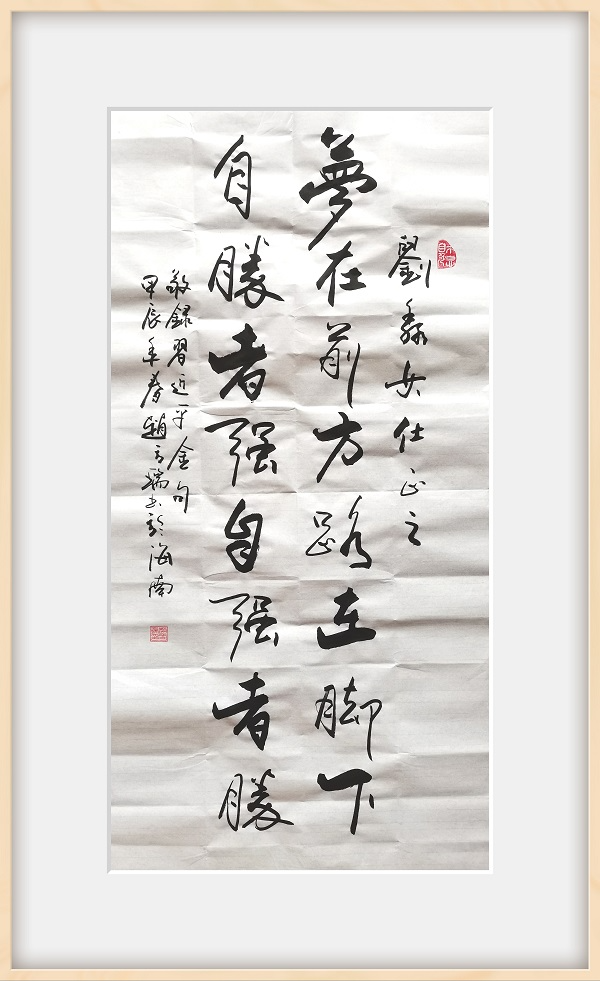 劉鑫女仕正之
夢在前方路在脚下
自勝者强自强者勝
敬録習近平金句
甲辰年春趙瑞书於海南